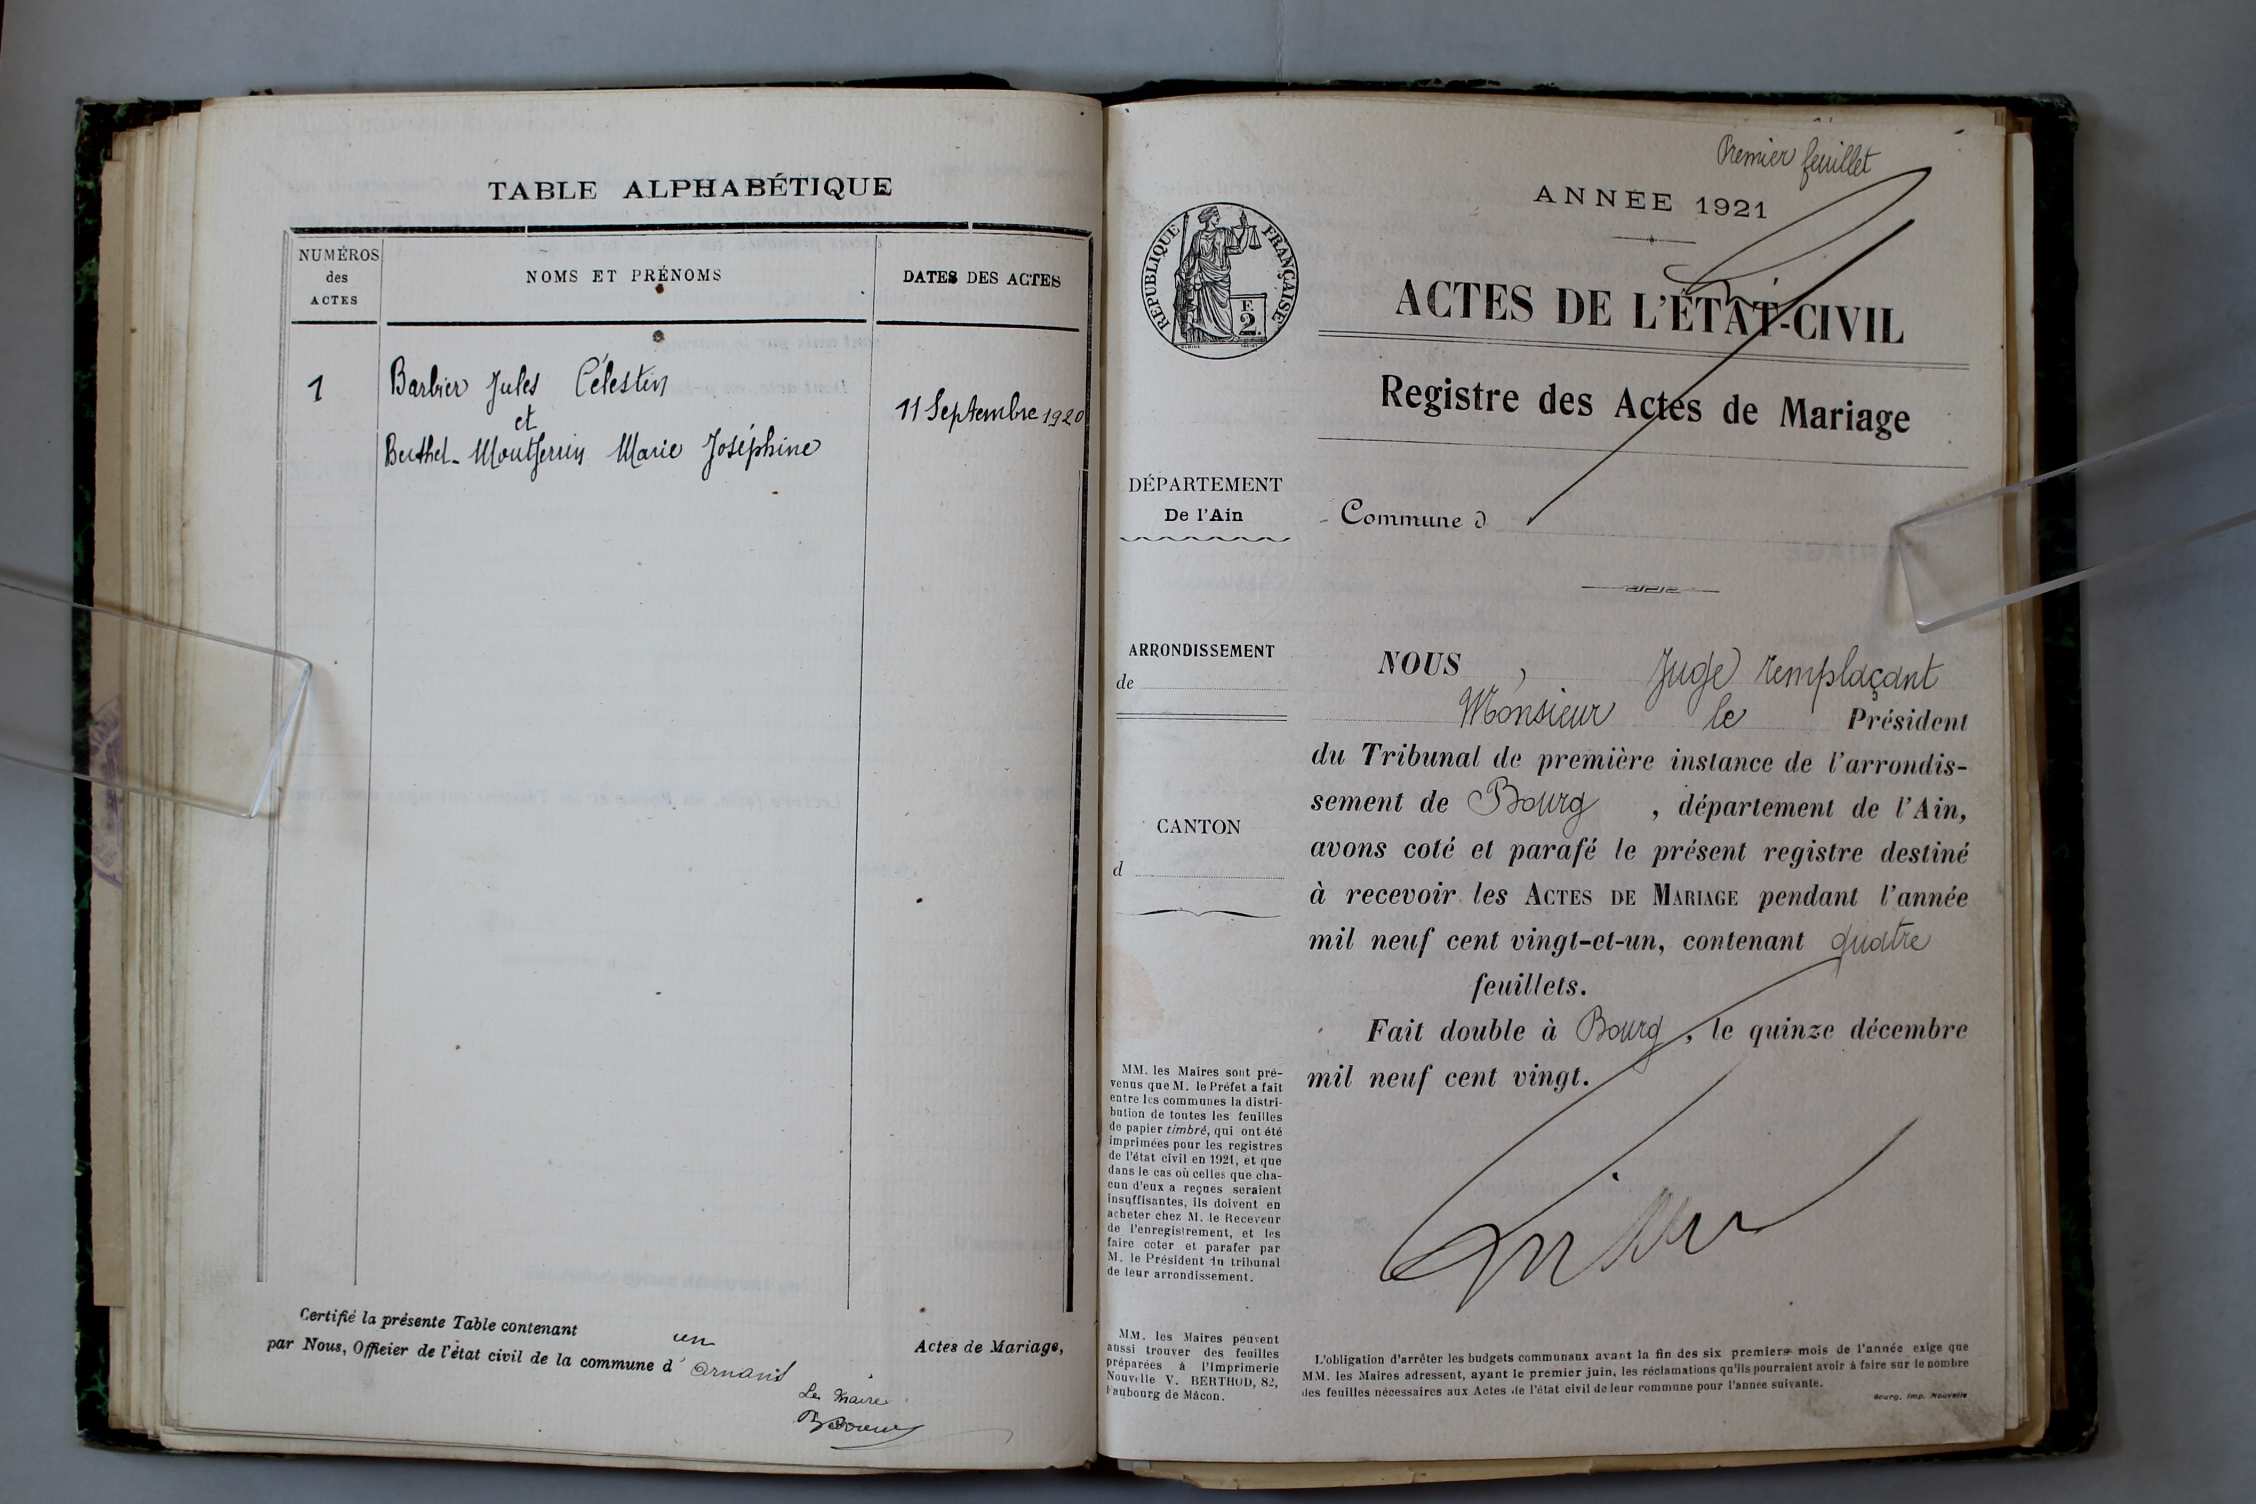 TABLE ALPHABÉTIQUE
NUMÉROS
des
ACTES
NOMS ET PRÉNOMS
DATES DES ACTES
1
Barbier Jules Célestin
et
11 Septembre 1920
Berthet-Montferrin Marie Joséphine
Certifié la présente Table contenant un Actes de Mariage,
par Nous, Officier de l'état civil de la commune d'Arnans
Le Maire
Premier feuillet
ANNÉE 1921
RÉPUBLIQUE FRANÇAISE
F.
2.
ACTES DE L'ÉTAT-CIVIL
Registre des Actes de Mariage
DÉPARTEMENT
De l'Ain
Commune d
ARRONDISSEMENT
de
CANTON
d
NOUS, Juge remplaçant
Monsieur le Président
du Tribunal de première instance de l'arrondis-
sement de Bourg, département de l'Ain,
avons coté et parafé le présent registre destiné
à recevoir les ACTES DE MARIAGE pendant l'année
mil neuf cent vingt-et-un, contenant quatre
feuillets.
Fait double à Bourg, le quinze décembre
mil neuf cent vingt.
MM. les Maires sont pré-
venus que M. le Préfet a fait
entre les communes la distri-
bution de toutes les feuilles
de papier timbré, qui ont été
imprimées pour les registres
de l'état civil en 1921, et que
dans le cas où celles que cha-
cun d'eux a reçues seraient
insuffisantes, ils doivent en
acheter chez M. le Receveur
de l'enregistrement, et les
faire coter et parafer par
M. le Président du tribunal
de leur arrondissement.
MM. les Maires peuvent
aussi trouver des feuilles
préparées à l'Imprimerie
Nouvelle V. BERTHOD, 82,
Faubourg de Mâcon.
L'obligation d'arrêter les budgets communaux avant la fin des six premiers mois de l'année exige que
MM. les Maires adressent, ayant le premier juin, les réclamations qu'ils pourraient avoir à faire sur le nombre
des feuilles nécessaires aux Actes de l'état civil de leur commune pour l'année suivante.
Bourg, Imp. Nouvelle